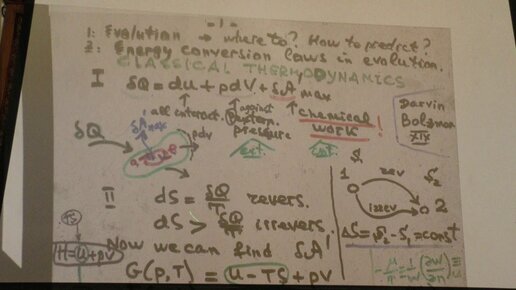 - 1 -
1: Evolution → where to? How to predict?
2: Energy conversion laws in evolution.
CLASSICAL THERMODYNAMICS
I δQ = dU + pdV + δA max
all interact. against extern. pressure
chemical work!
Darvin
Bolzman
XIX
δQ
pdV
II dS = δQ/T revers.
dS > δQ/T irrevers.
1 rev S₂
irrev 2
ΔS = S₂ - S₁ = const
TS
H = U + pV
Now we can find δA!
G(p,T) = U - TS + pV